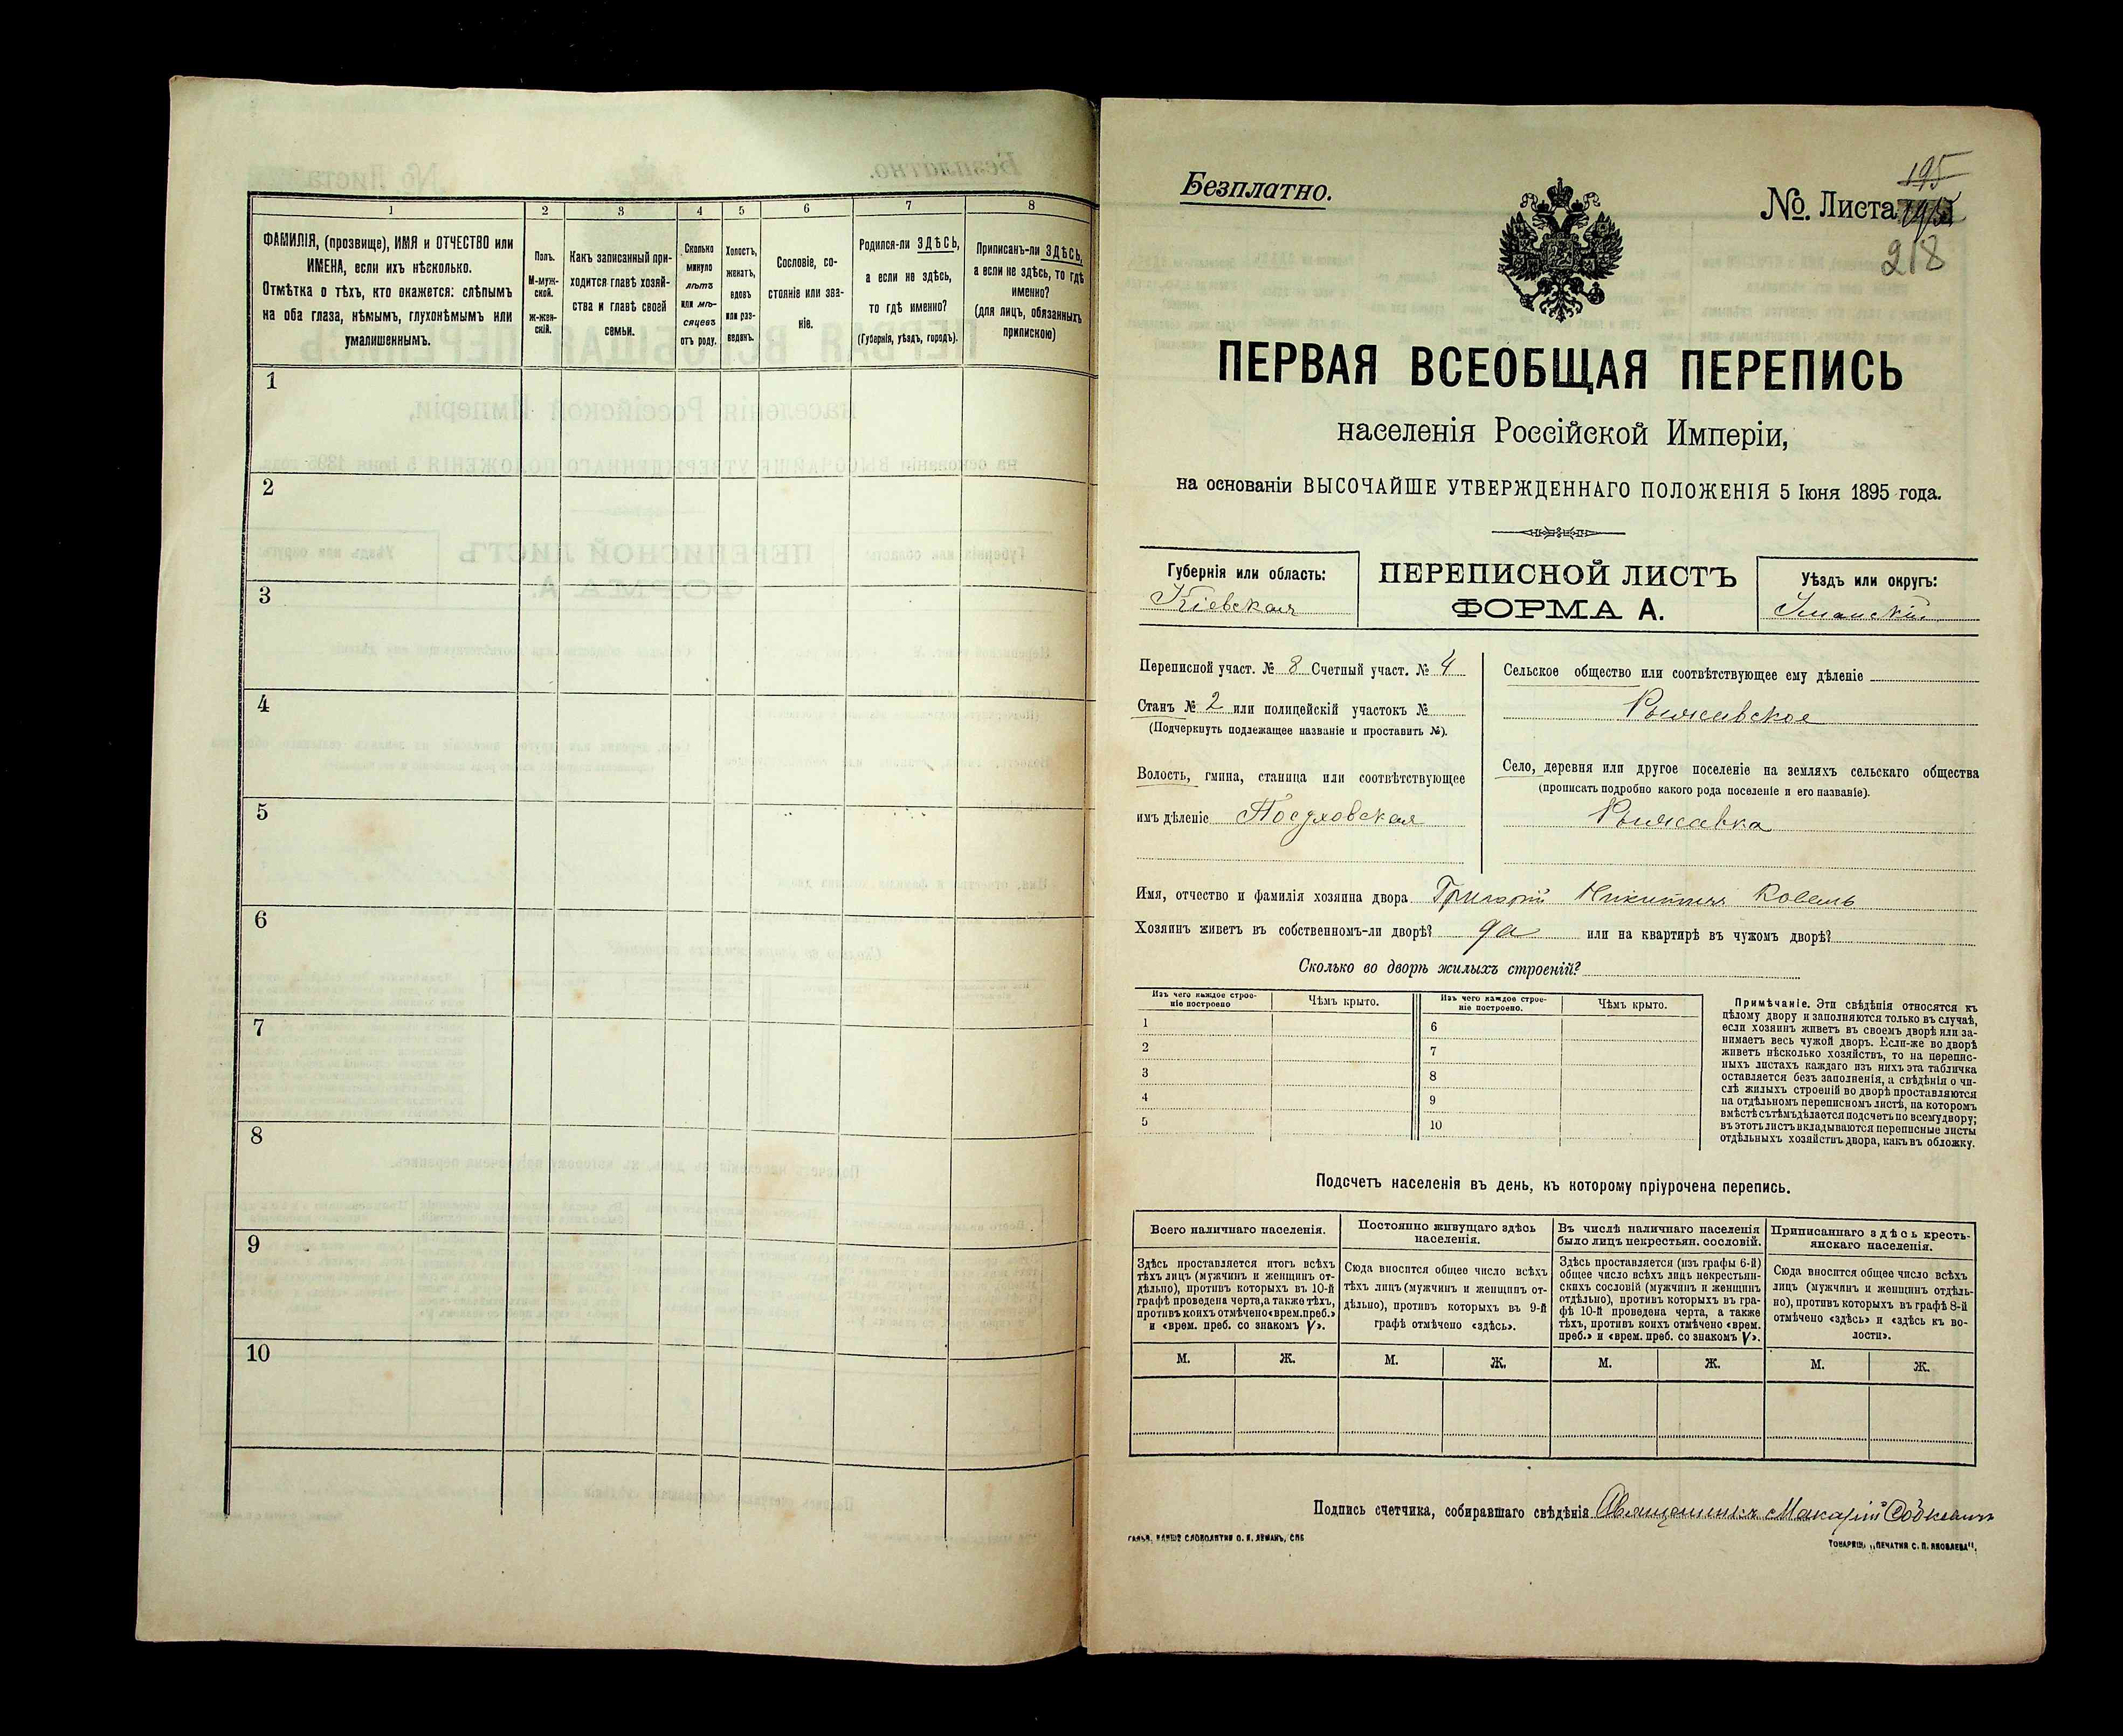 1
2
3
4
5
6
7
8
ФАМИЛІЯ, (прозвище), ИМЯ и ОТЧЕСТВО или
ИМЕНА, если ихъ нѣсколько.
Отмѣтка о тѣхъ, кто окажется: слѣпымъ
на оба глаза, нѣмымъ, глухонѣмымъ или
умалишеннымъ.
Полъ.
М-муж-
ской.
Ж-жен-
скій.
Какъ записанный при-
ходится главѣ хозяй-
ства и главѣ своей
семьи.
Сколько
минуло
лѣтъ
или мѣ-
сяцевъ
отъ роду.
Холостъ,
женатъ,
вдовъ
или раз-
веденъ.
Сословіе, со-
стояніе или зва-
ніе.
Родился-ли ЗДѢСЬ,
а если не здѣсь,
то гдѣ именно?
(Губернія, уѣздъ, городъ).
Приписанъ-ли ЗДѢСЬ,
а если не здѣсь, то гдѣ
именно?
(для лицъ, обязанныхъ
припискою)
1
2
3
4
5
6
7
8
9
10
Безплатно.
195
№. Листа
218
ПЕРВАЯ ВСЕОБЩАЯ ПЕРЕПИСЬ
населенія Россійской Имперіи,
на основаніи ВЫСОЧАЙШЕ УТВЕРЖДЕННАГО ПОЛОЖЕНІЯ 5 Іюня 1895 года.
Губернія или область:
Кіевская
ПЕРЕПИСНОЙ ЛИСТЪ
ФОРМА А.
Уѣздъ или округъ:
Уманскій
Переписной участ. № 8 Счетный участ. № 4
Станъ № 2 или полицейскій участокъ №
(Подчеркнуть подлежащее названіе и проставить №).
Волость, гмина, станица или соотвѣтствующее
имъ дѣленіе
Сельское общество или соотвѣтствующее ему дѣленіе
Рыжавское
Село, деревня или другое поселеніе на земляхъ сельскаго общества
(прописать подробно какого рода поселеніе и его названіе).
Рыжавка
Имя, отчество и фамилія хозяина двора Григорій Никитинъ Коваль
Хозяинъ живетъ въ собственномъ-ли дворѣ? да или на квартирѣ въ чужомъ дворѣ?
Сколько во дворѣ жилыхъ строеній?
Изъ чего каждое строе-
ніе построено
Чѣмъ крыто.
Изъ чего каждое строе-
ніе построено.
Чѣмъ крыто.
1
2
3
4
5
6
7
8
9
10
Примѣчаніе. Эти свѣдѣнія относятся къ
цѣлому двору и заполняются только въ случаѣ,
если хозяинъ живетъ въ своемъ дворѣ или за-
нимаетъ весь чужой дворъ. Если-же во дворѣ
живетъ нѣсколько хозяйствъ, то на перепис-
ныхъ листахъ каждаго изъ нихъ эта табличка
оставляется безъ заполненія, а свѣдѣнія о чи-
слѣ жилыхъ строеній во дворѣ проставляются
на отдѣльномъ переписномъ листѣ, на которомъ
вмѣстѣ съ тѣмъ дѣлается подсчетъ по всему двору;
въ этотъ листъ вкладываются переписные листы
отдѣльныхъ хозяйствъ двора, какъ въ обложку.
Подсчетъ населенія въ день, къ которому пріурочена перепись.
Всего наличнаго населенія.
Здѣсь проставляется итогъ всѣхъ
тѣхъ лицъ (мужчинъ и женщинъ от-
дѣльно), противъ которыхъ въ 10-й
графѣ проведена черта, а также тѣхъ,
противъ коихъ отмѣчено «врем. преб.»
и «врем. преб. со знакомъ V».
Постоянно живущаго здѣсь
населенія.
Сюда вносится общее число всѣхъ
тѣхъ лицъ (мужчинъ и женщинъ от-
дѣльно), противъ которыхъ въ 9-й
графѣ отмѣчено «здѣсь».
Въ числѣ наличнаго населенія
было лицъ некрестьян. сословій.
Здѣсь проставляется (изъ графы 6-й)
общее число всѣхъ лицъ некрестьян-
скихъ сословій (мужчинъ и женщинъ
отдѣльно), противъ которыхъ въ гра-
фѣ 10-й проведена черта, а также
тѣхъ, противъ коихъ отмѣчено «врем.
преб.» и «врем. преб. со знакомъ V».
Приписаннаго здѣсь кресть-
янскаго населенія.
Сюда вносится общее число всѣхъ
лицъ (мужчинъ и женщинъ отдѣль-
но), противъ которыхъ въ графѣ 8-й
отмѣчено «здѣсь» и «здѣсь къ во-
лости».
М.
Ж.
М.
Ж.
М.
Ж.
М.
Ж.
Подпись счетчика, собиравшаго свѣдѣнія Священникъ Макарій
ТОВАРИЩ. „ПЕЧАТНЯ С. П. ЯКОВЛЕВА".